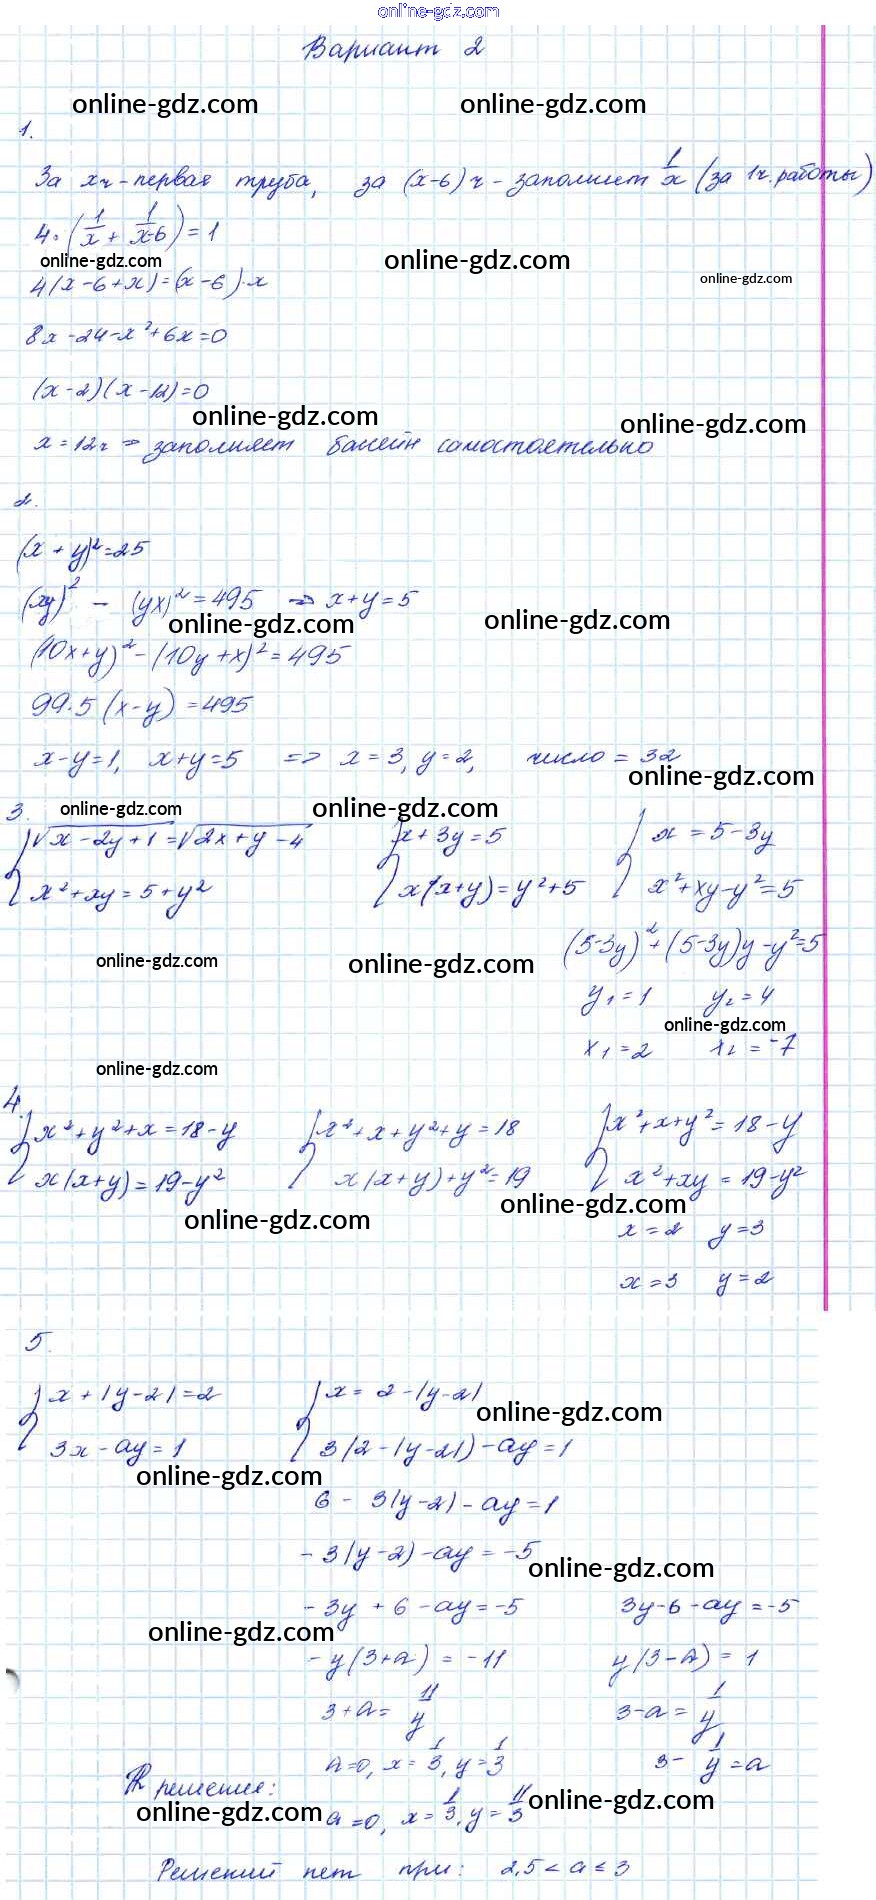 online-gdz.com
Вариант 2
online-gdz.com online-gdz.com
1.
За xч - первая труба, за (x-6) ч - заполнит 1/x (за 1ч. работы)
4·(1/x + 1/x-6) = 1
online-gdz.com online-gdz.com online-gdz.com
4(x-6+x) = (x-6)·x
8x-24-x²+6x=0
(x-2)(x-12)=0
online-gdz.com online-gdz.com
x=12ч => заполняет бассейн самостоятельно
2.
(x+y)²=25
(xy)² - (yx)²=495 => x+y=5
online-gdz.com online-gdz.com
(10x+y)²-(10y+x)²=495
99·5(x-y)=495
x-y=1, x+y=5 => x=3, y=2, число = 32
online-gdz.com
3. online-gdz.com online-gdz.com
{√x-2y+1=√2x+y-4 {x+3y=5 {x=5-3y
x²+xy=5+y² x(x+y)=y²+5 x²+xy-y²=5
(5-3y)²+(5-3y)y-y²=5
online-gdz.com online-gdz.com
y₁=1 y₂=4
online-gdz.com
x₁=2 x₂=-7
online-gdz.com
4.
{x²+y²+x=18-y {x²+x+y²+y=18 {x²+x+y²=18-y
x(x+y)=19-y² x(x+y)+y²=19 x²+xy=19-y²
online-gdz.com online-gdz.com
x=2 y=3
x=3 y=2
5.
{x+|y-2|=2 {x=2-|y-2|
online-gdz.com
3x-ay=1 3(2-|y-2|)-ay=1
online-gdz.com
6-3(y-2)-ay=1
-3(y-2)-ay=-5
online-gdz.com
-3y+6-ay=-5 3y-6-ay=-5
online-gdz.com
-y(3+a)=-11 y(3-a)=1
3+a=11/y 3-a=1/y
a=0, x=1/3, y=1/3 3-1/y=a
решение:
online-gdz.com online-gdz.com
a=0, x=1/3, y=11/3
Решений нет при: 2,5<a≤3